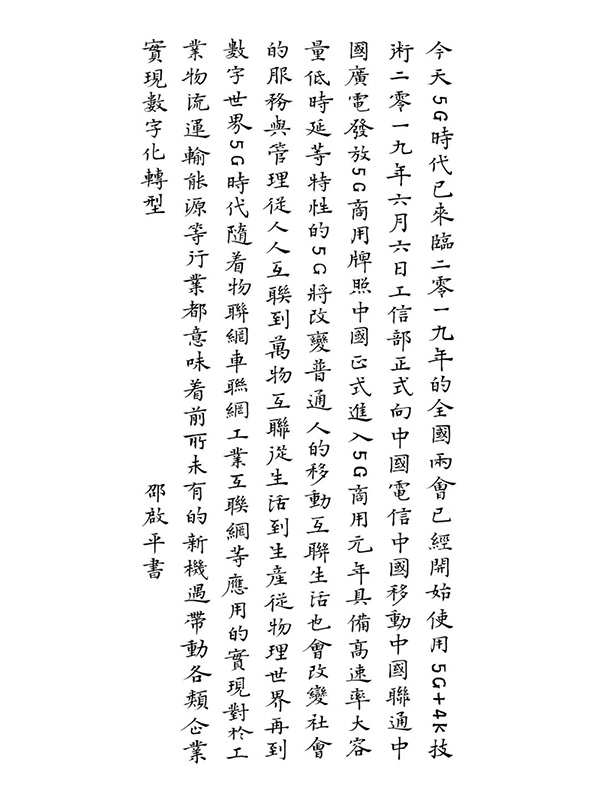 今天5G時代已來臨二零一九年的全國兩會已經開始使用5G+4K技
術二零一九年六月六日工信部正式向中國電信中國移動中國聯通中
國廣電發放5G商用牌照中國正式進入5G商用元年具備高速率大容
量低時延等特性的5G將改變普通人的移動互聯生活也會改變社會
的服務與管理從人人互聯到萬物互聯從生活到生產從物理世界再到
數字世界5G時代隨着物聯網車聯網工業互聯網等應用的實現對於工
業物流運輸能源等行業都意味着前所未有的新機遇帶動各類企業
實現數字化轉型
邵啟平書